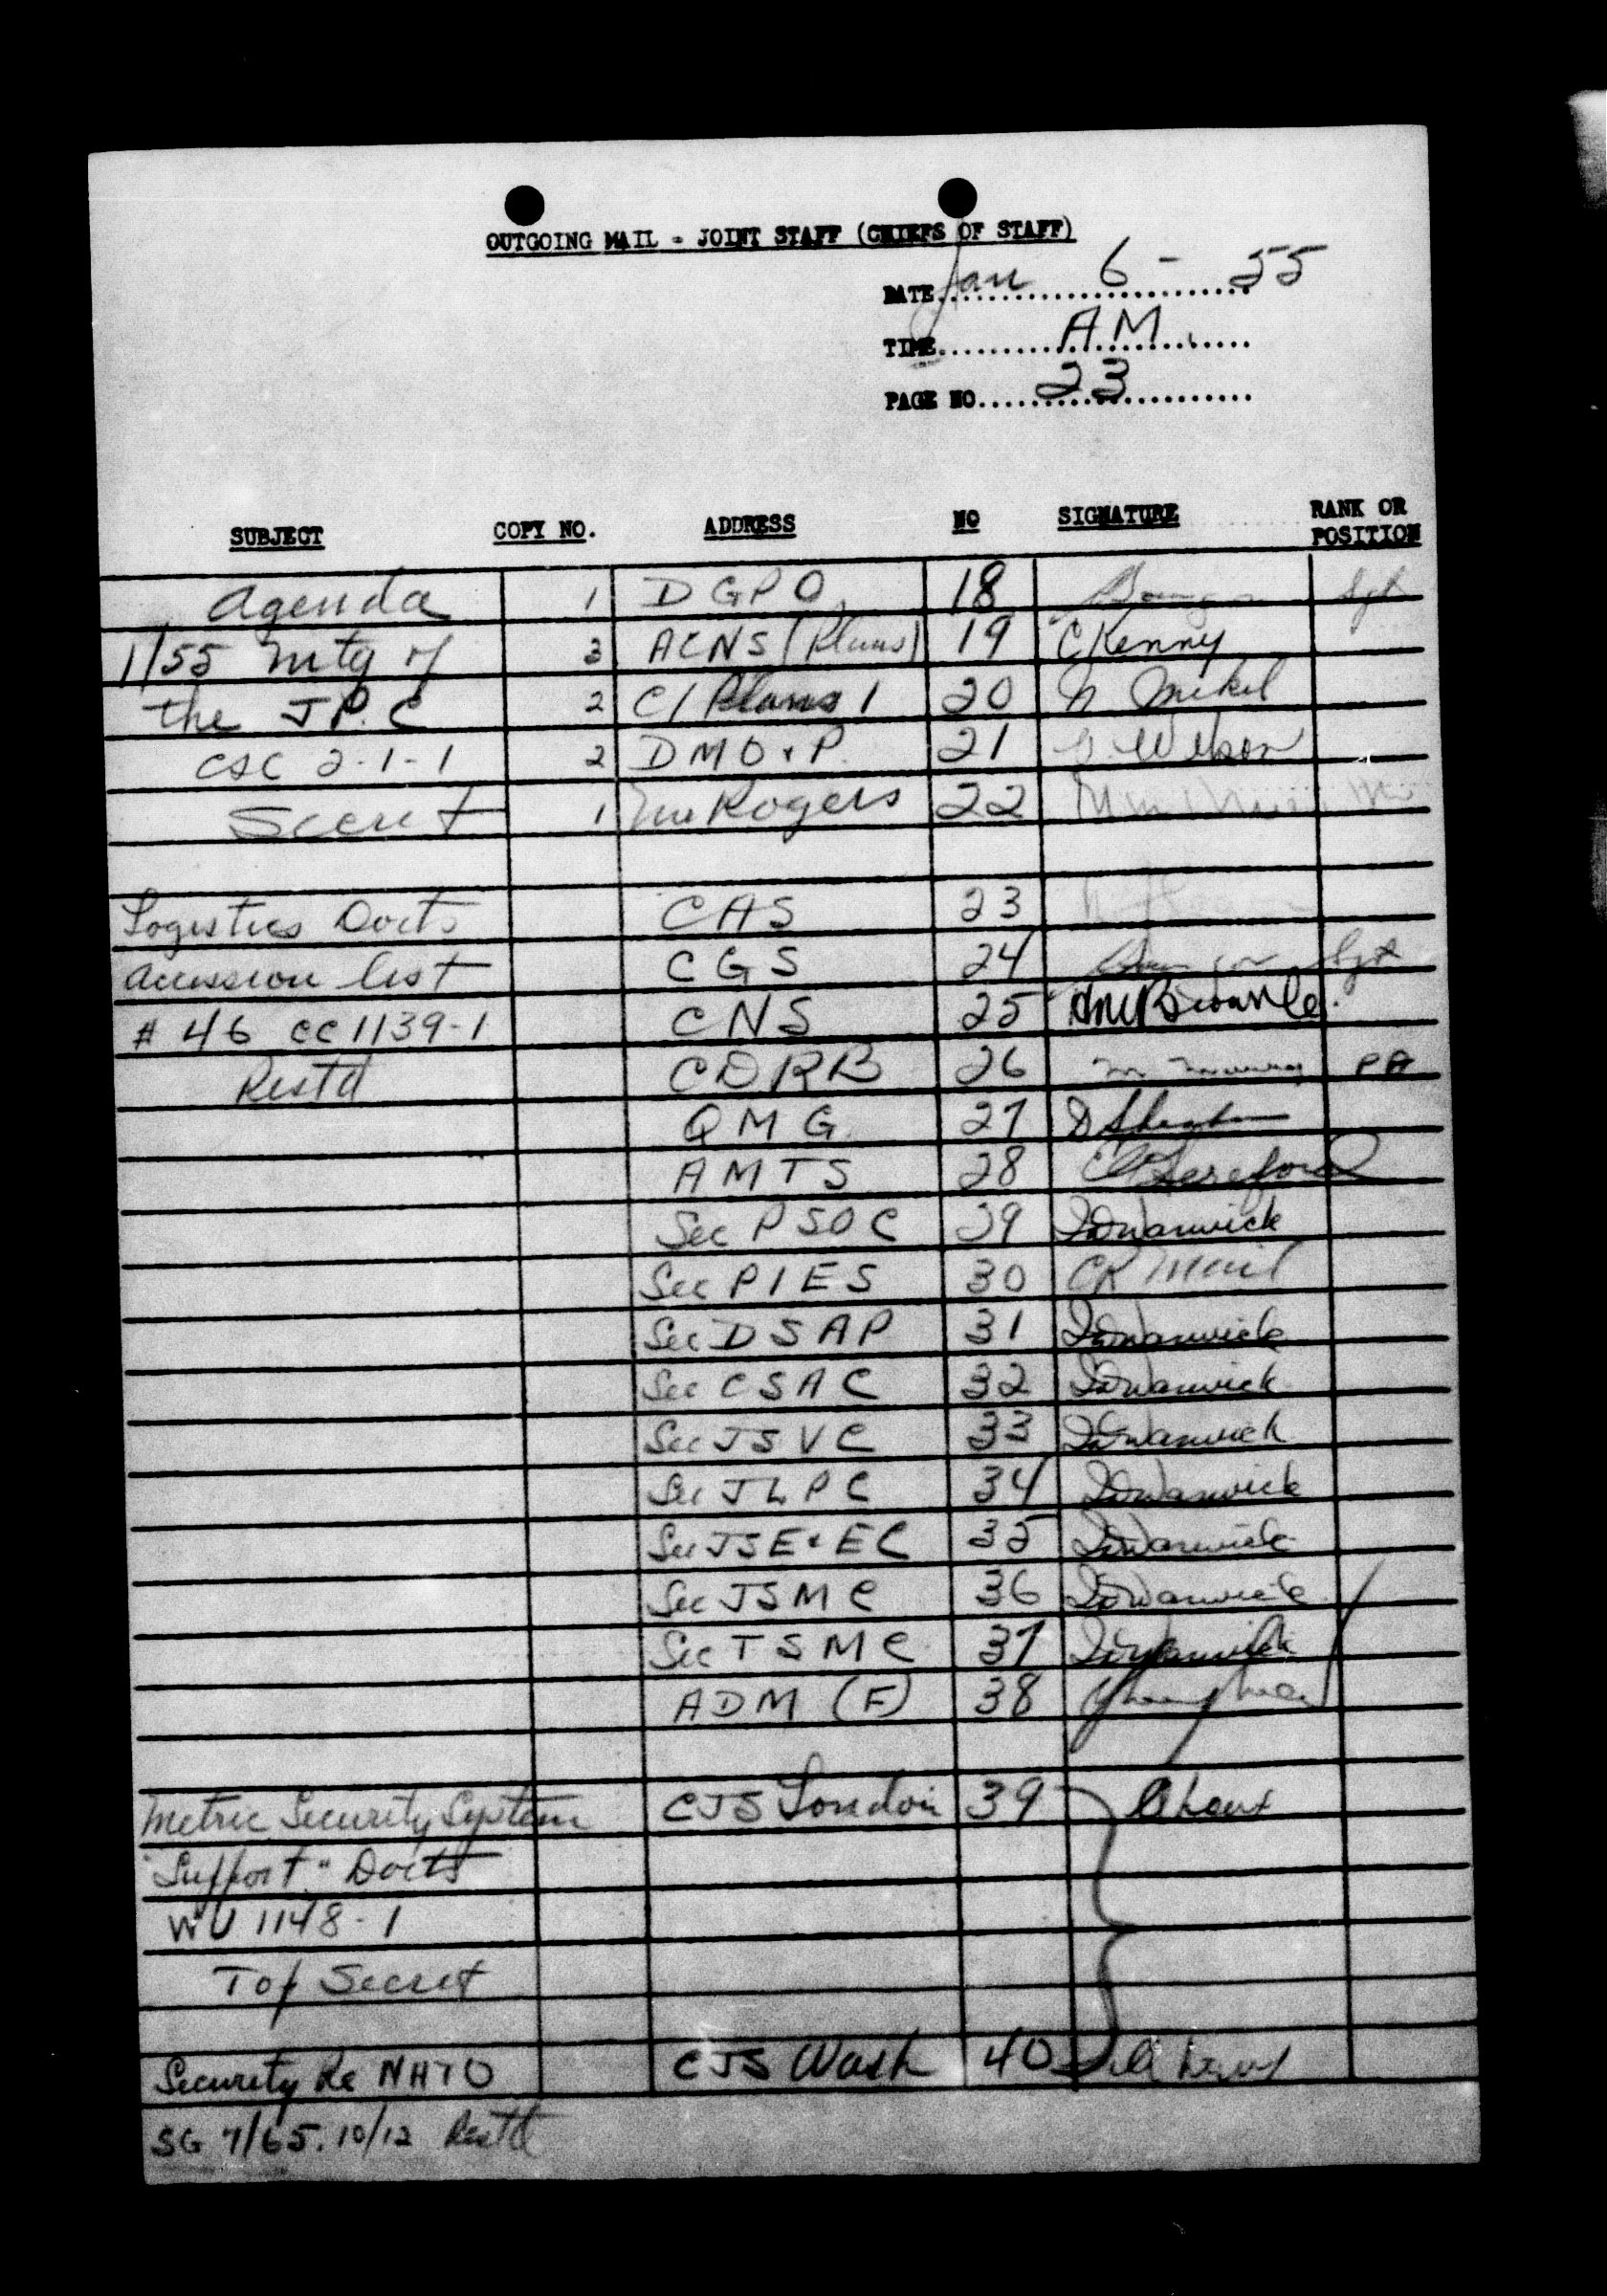 OUTGOING MAIL - JOINT STAFF (CHIEFS OF STAFF)
DATE Jan 6 - 55
TIME A.M.
PAGE NO. 23
SUBJECT COPY NO. ADDRESS NO SIGNATURE RANK OR POSITION
Agenda 1 DGPO 18 Sgt
1/55 mtg of 3 ACNS (Plans) 19 C Kenny
the J.P.C 2 C/Plans 1 20
CSC 2-1-1 2 DMO & P. 21 Wilson
Secret 1 Rogers 22
Logistics Docts CAS 23
Accession list CGS 24 Sgt
# 46 CC1139-1 CNS 25
Restd CDRB 26 PA
QMG 27
AMTS 28
Sec PSOC 29 Warwick
Sec PIES 30
Sec DSAP 31 Warwick
Sec CSAC 32 Warwick
Sec JSVC 33 Warwick
Sec JLPC 34 Warwick
Sec JSE & EC 35 Warwick
Sec JSMC 36 Warwick
Sec TSMC 37 Warwick
ADM (F) 38
Metric Security System CJS London 39
"Support" Docts
WU 1148-1
Top Secret
Security Re NATO CJS Wash 40
SG 7/65.10/12 Restd